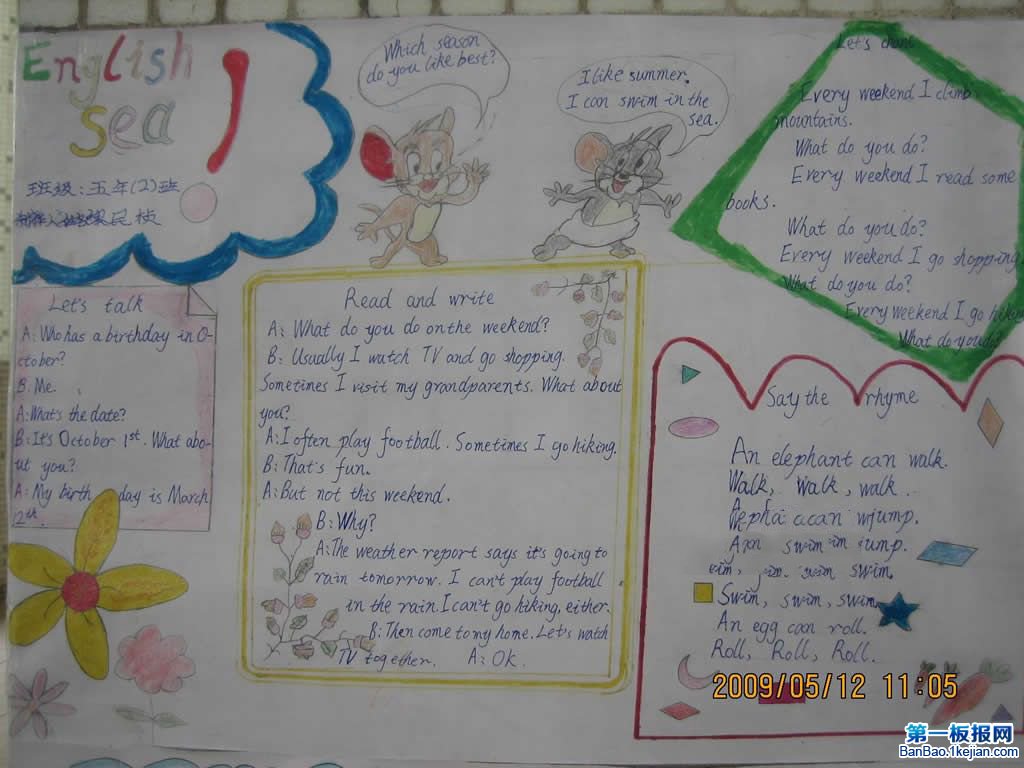 English
sea
班级:五年(2)班
Which season
do you like best?
I like summer.
I can swim in the
sea.
Let's chant
Every weekend I climb
mountains.
What do you do?
Every weekend I read some
books.
What do you do?
Every weekend I go shopping
What do you do?
Every weekend I go hiking
What do you do?
Let's talk
A: Who has a birthday in O-
ctober?
B: Me.
A: What's the date?
B: It's October 1st. What abo-
ut you?
A: My birthday is March
12th.
Read and write
A: What do you do on the weekend?
B: Usually I watch TV and go shopping.
Sometimes I visit my grandparents. What about
you?
A: I often play football. Sometimes I go hiking.
B: That's fun.
A: But not this weekend.
B: Why?
A: The weather report says it's going to
rain tomorrow. I can't play football
in the rain. I can't go hiking, either.
B: Then come to my home. Let's watch
TV together. A: OK.
Say the rhyme
An elephant can walk.
Walk, walk, walk.
swim, swim.
Swim, swim, swim.
An egg can roll.
Roll, Roll, Roll.
2009/05/12 11:05
第一板报网
BanBao.1kejian.com